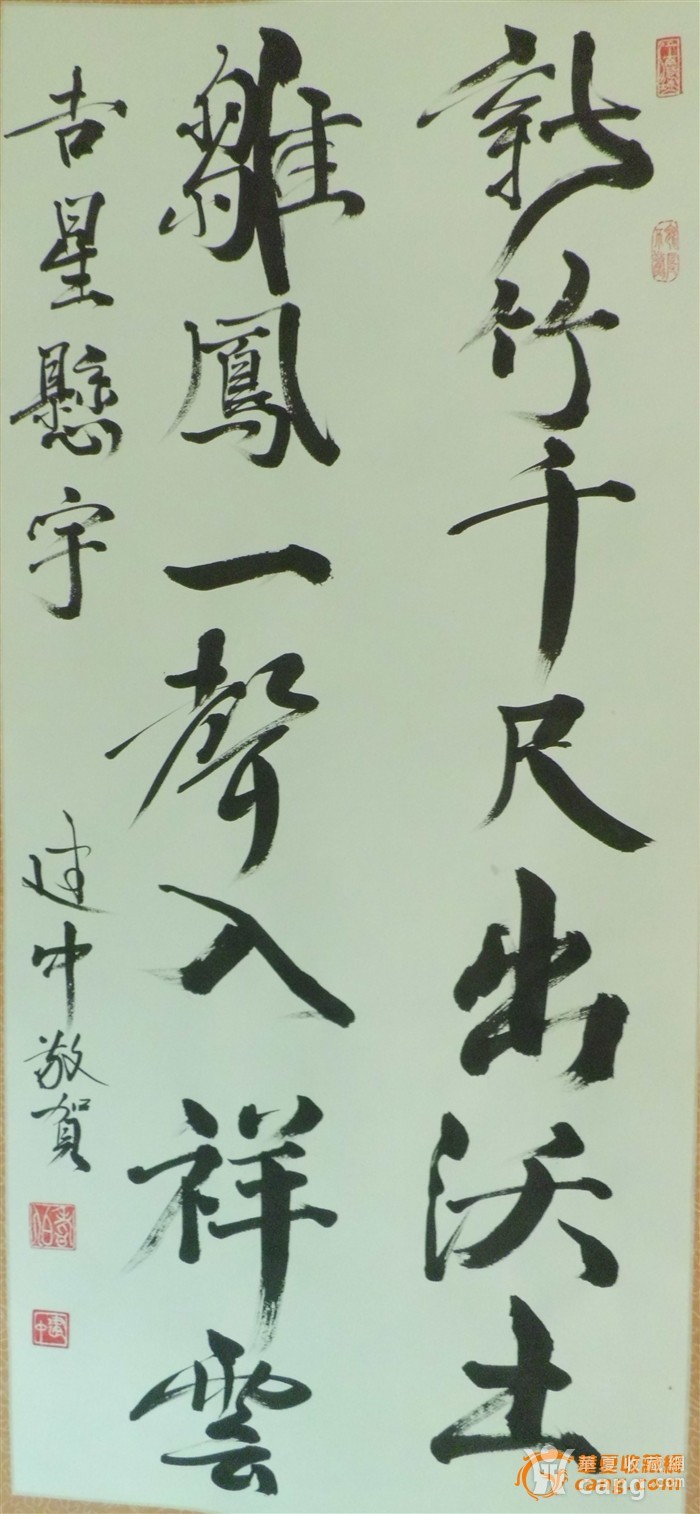 新竹千尺出沃土
雛鳳一聲入祥雲
吉星懸宇
建中敬賀
建中
華夏收藏網
cang.com